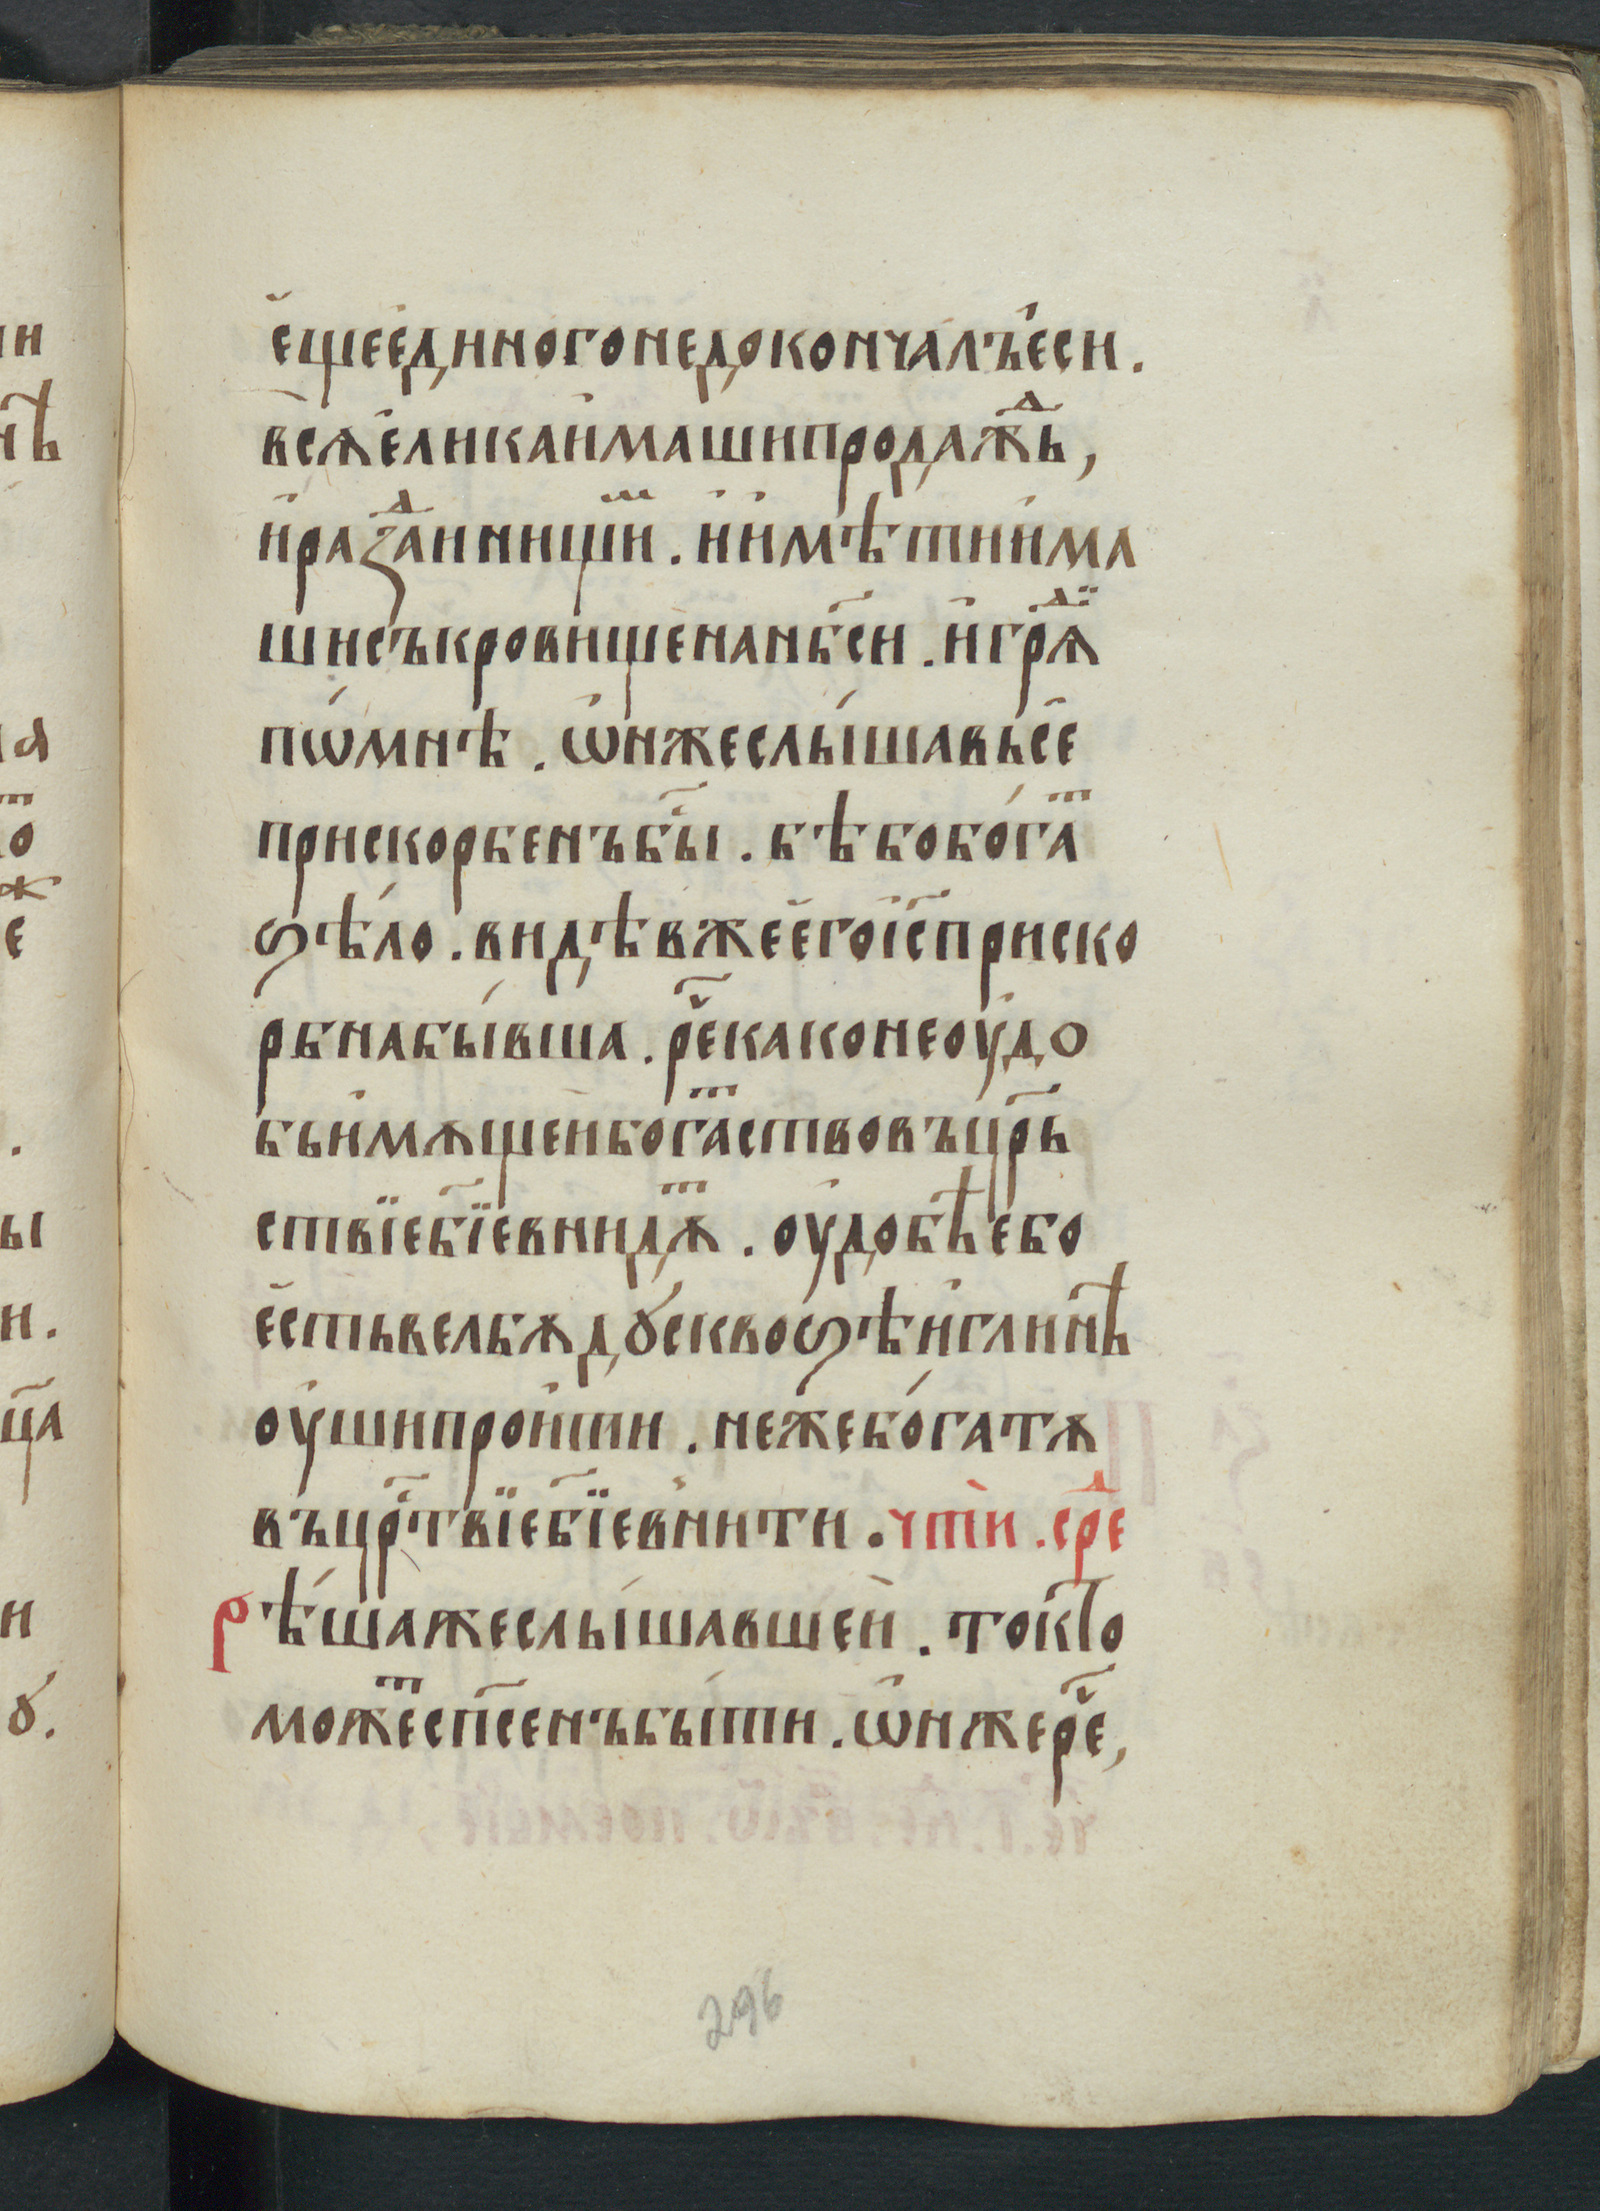 еще единого не докончалъ еси .
вся елика имаши продажⷣь ,
и раздⷣаи нищиⷨ . и имѣти има
ши съкровище на нб҃си . и грѧⷣ
по мнѣ . ѡн же слышавь се
прискорбенъ бы҃ . бѣ бо богаⷮ
ѕѣло . видѣв же его іс҃ приско
рбна бывша . рече҃ како не оудо
бь имѧщеи богаⷮство въ црь҃
ствїе бж҃їе внидѧⷮ . оудобѣе бо
есть вельбѫдꙋ сквоѕѣ иглинѣ
оуши проити . неже богатꙋ
въ црⷭтвїе бж҃їе внити . чти . среⷣ
рѣша же слышавшеи . то кто
можеⷮ спс҃енъ быти . ѡн же реⷱ ,
296